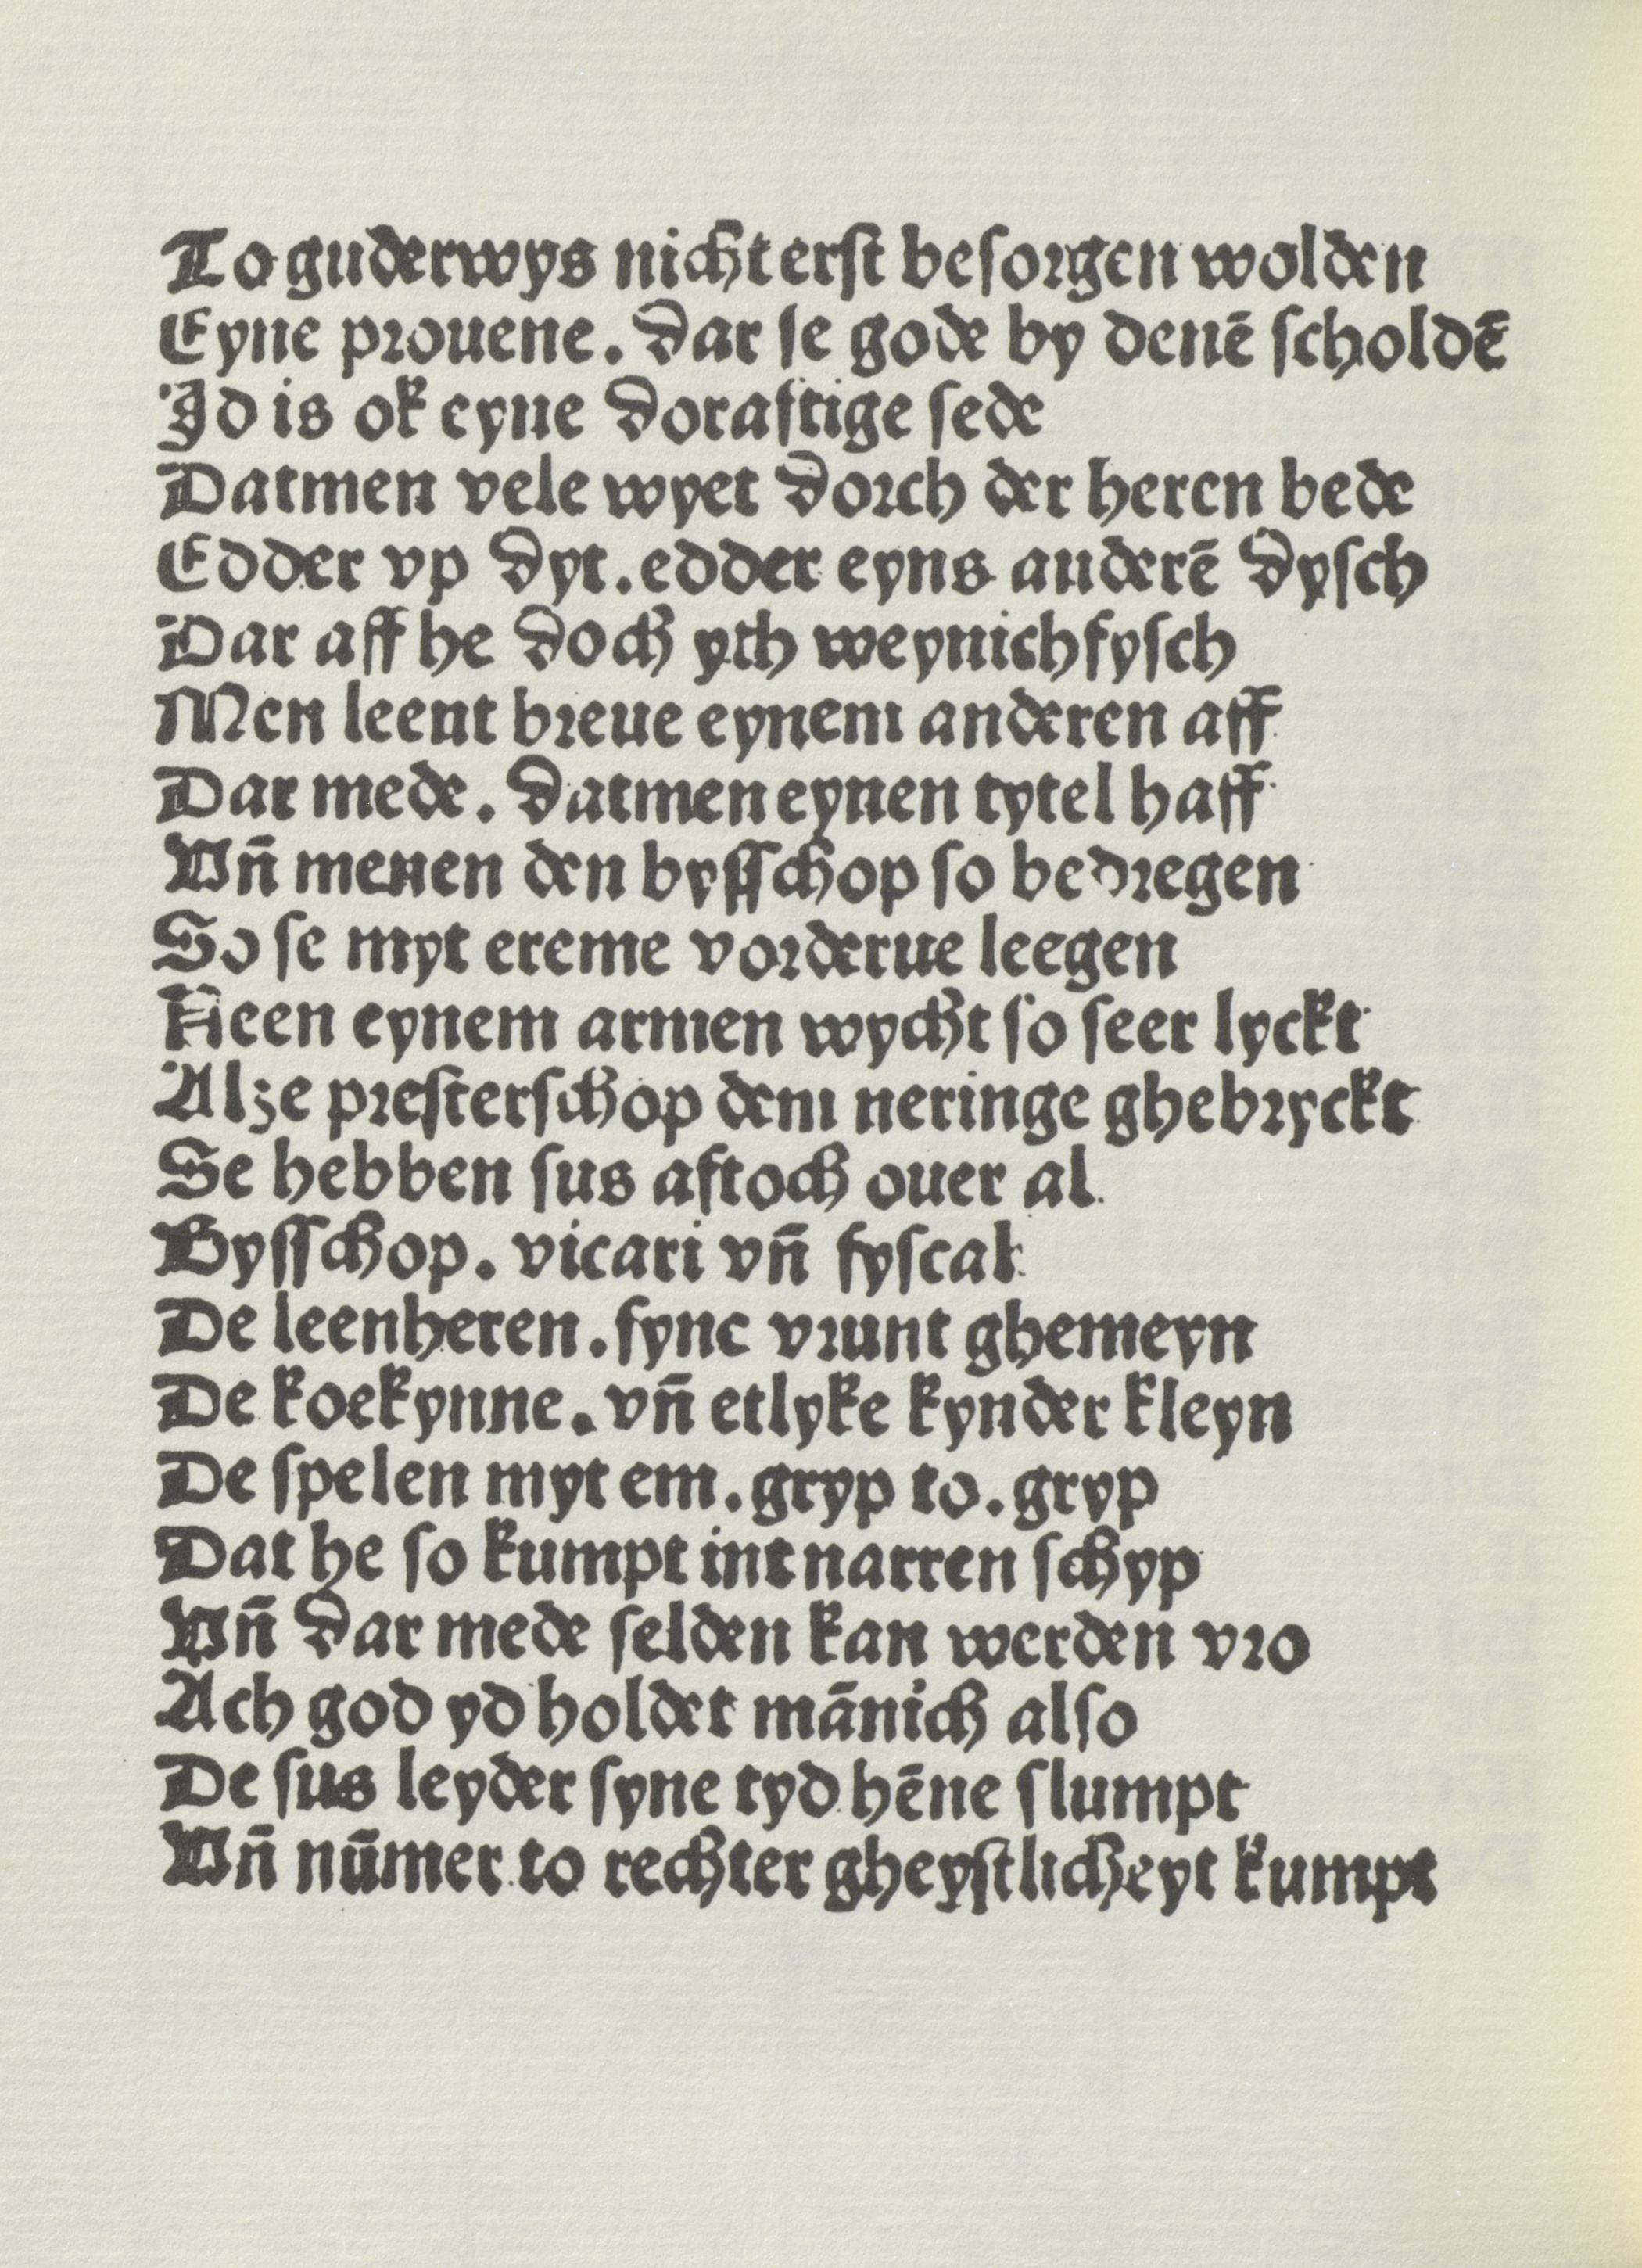 To guderwys nicht erſt beſorgen wolden
Eyne prouene. Dar ſe gode by denē ſcholdē
Jd is ok eyne Doraftige ſede
Datmen vele wyet Dorch der heren bede
Edder vp Dyt. edder eyns anderē Dyſch
Dar aff he Doch yth weynich fyſch
Men leent breue eynem anderen aff
Dar mede. Datmen eynen tytel haff
Vn̄ menen den byſſchop ſo bedregen
So ſe myt ereme vorderue leegen
Neen eynem armen wycht ſo ſeer lyckt
Alze preſterſchop dem neringe ghebryckt
Se hebben ſus aftoch ouer al
Byſſchop. vicari vn̄ fyſcal
De leenheren. ſyne vrunt ghemeyn
De koekynne. vn̄ etlyke kynder kleyn
De ſpelen myt em. gryp to. gryp
Dat he ſo kumpt int narren ſchyp
Vn̄ Dar mede ſelden kan werden vro
Ach god yd holdet mānich alſo
De ſus leyder ſyne tyd hēne ſlumpt
Vn̄ nūmer to rechter gheyſtlicheyt kumpt